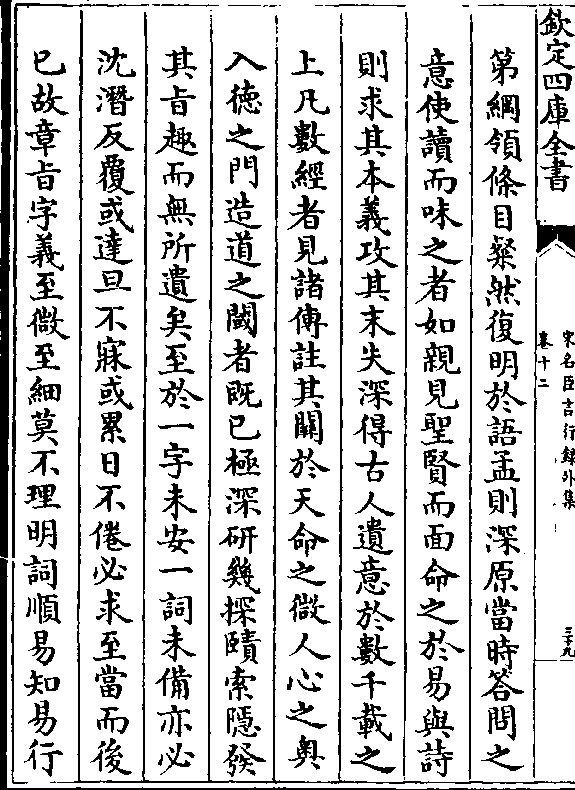 欽定四庫全書
宋名臣言行錄外集
卷十二
三十九
第綱領條目粲然復明於語孟則深原當時答問之
意使讀而味之者如親見聖賢而面命之於易與詩
則求其本義攻其末失深得古人遺意於數千載之
上凡數經者見諸傳註其關於天命之微人心之奥
入德之門造道之閾者既已極深研幾探賾索隱發
其㫖趣而無所遺矣至於一字未安一詞未備亦必
沈潛反覆或達旦不寐或累日不倦必求至當而後
已故章㫖字義至微至細莫不理明詞順易知易行